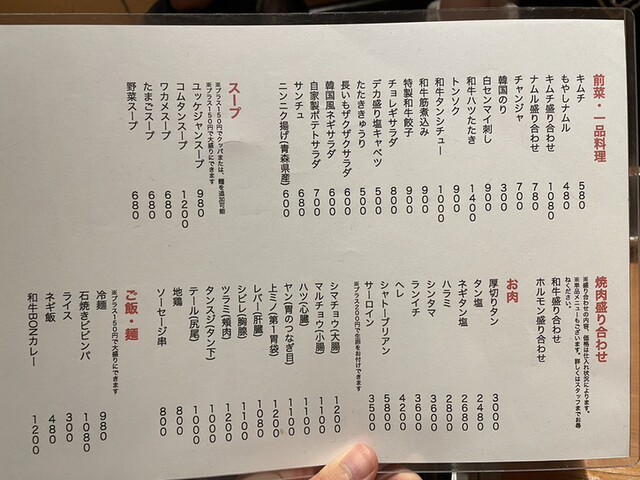 前菜・一品料理
キムチ 580
もやしナムル 480
キムチ盛り合わせ 1080
ナムル盛り合わせ 780
チャンジャ 700
韓国のり 300
白センマイ刺し 900
和牛ハツたたき 1400
トンソク 900
和牛タンシチュー 1000
和牛筋煮込み 900
特製和牛餃子 900
チョレギサラダ 800
デカ盛り塩キャベツ 500
たたききゅうり 500
長いもザクザクサラダ 600
韓国風ネギサラダ 600
自家製ポテトサラダ 700
サンチュ 680
ニンニク揚げ(青森県産) 600
スープ
※プラス150円でクッパまたは、麺を追加可能
※プラス150円で大盛りにできます
ユッケジャンスープ 980
コムタンスープ 1200
ワカメスープ 680
たまごスープ 680
野菜スープ 680
焼肉盛り合わせ
※盛り合わせの内容、価格は仕入れ状況によります。
※単品メニューもございます。詳しくはスタッフまでお尋
ねください。
和牛盛り合わせ
ホルモン盛り合わせ
お肉
厚切りタン 3000
タン塩 2480
ネギタン塩 2680
ハラミ 2800
シンタマ 3000
ランイチ 3600
ヘレ 4200
シャトーブリアン 5800
サーロイン 3500
※プラス200円で生卵をお付けできます
シマチョウ(大腸) 1200
マルチョウ(小腸) 1100
ハツ(心臓) 1100
ヤン(胃のつなぎ目) 1100
上ミノ(第1胃袋) 1200
レバー(肝臓) 1080
シビレ(胸腺) 1100
ツラミ(頬肉) 1200
タンスジ(タン下) 1000
テール(尻尾) 1000
地鶏 800
ソーセージ串 800
ご飯・麺
※プラス150円で大盛りにできます
冷麺 980
石焼きビビンバ 1080
ライス 300
ネギ飯 480
和牛BONカレー 1200